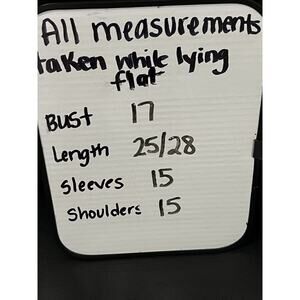 All measurements
taken while lying
flat
Bust 17
Length 25/28
Sleeves 15
Shoulders 15